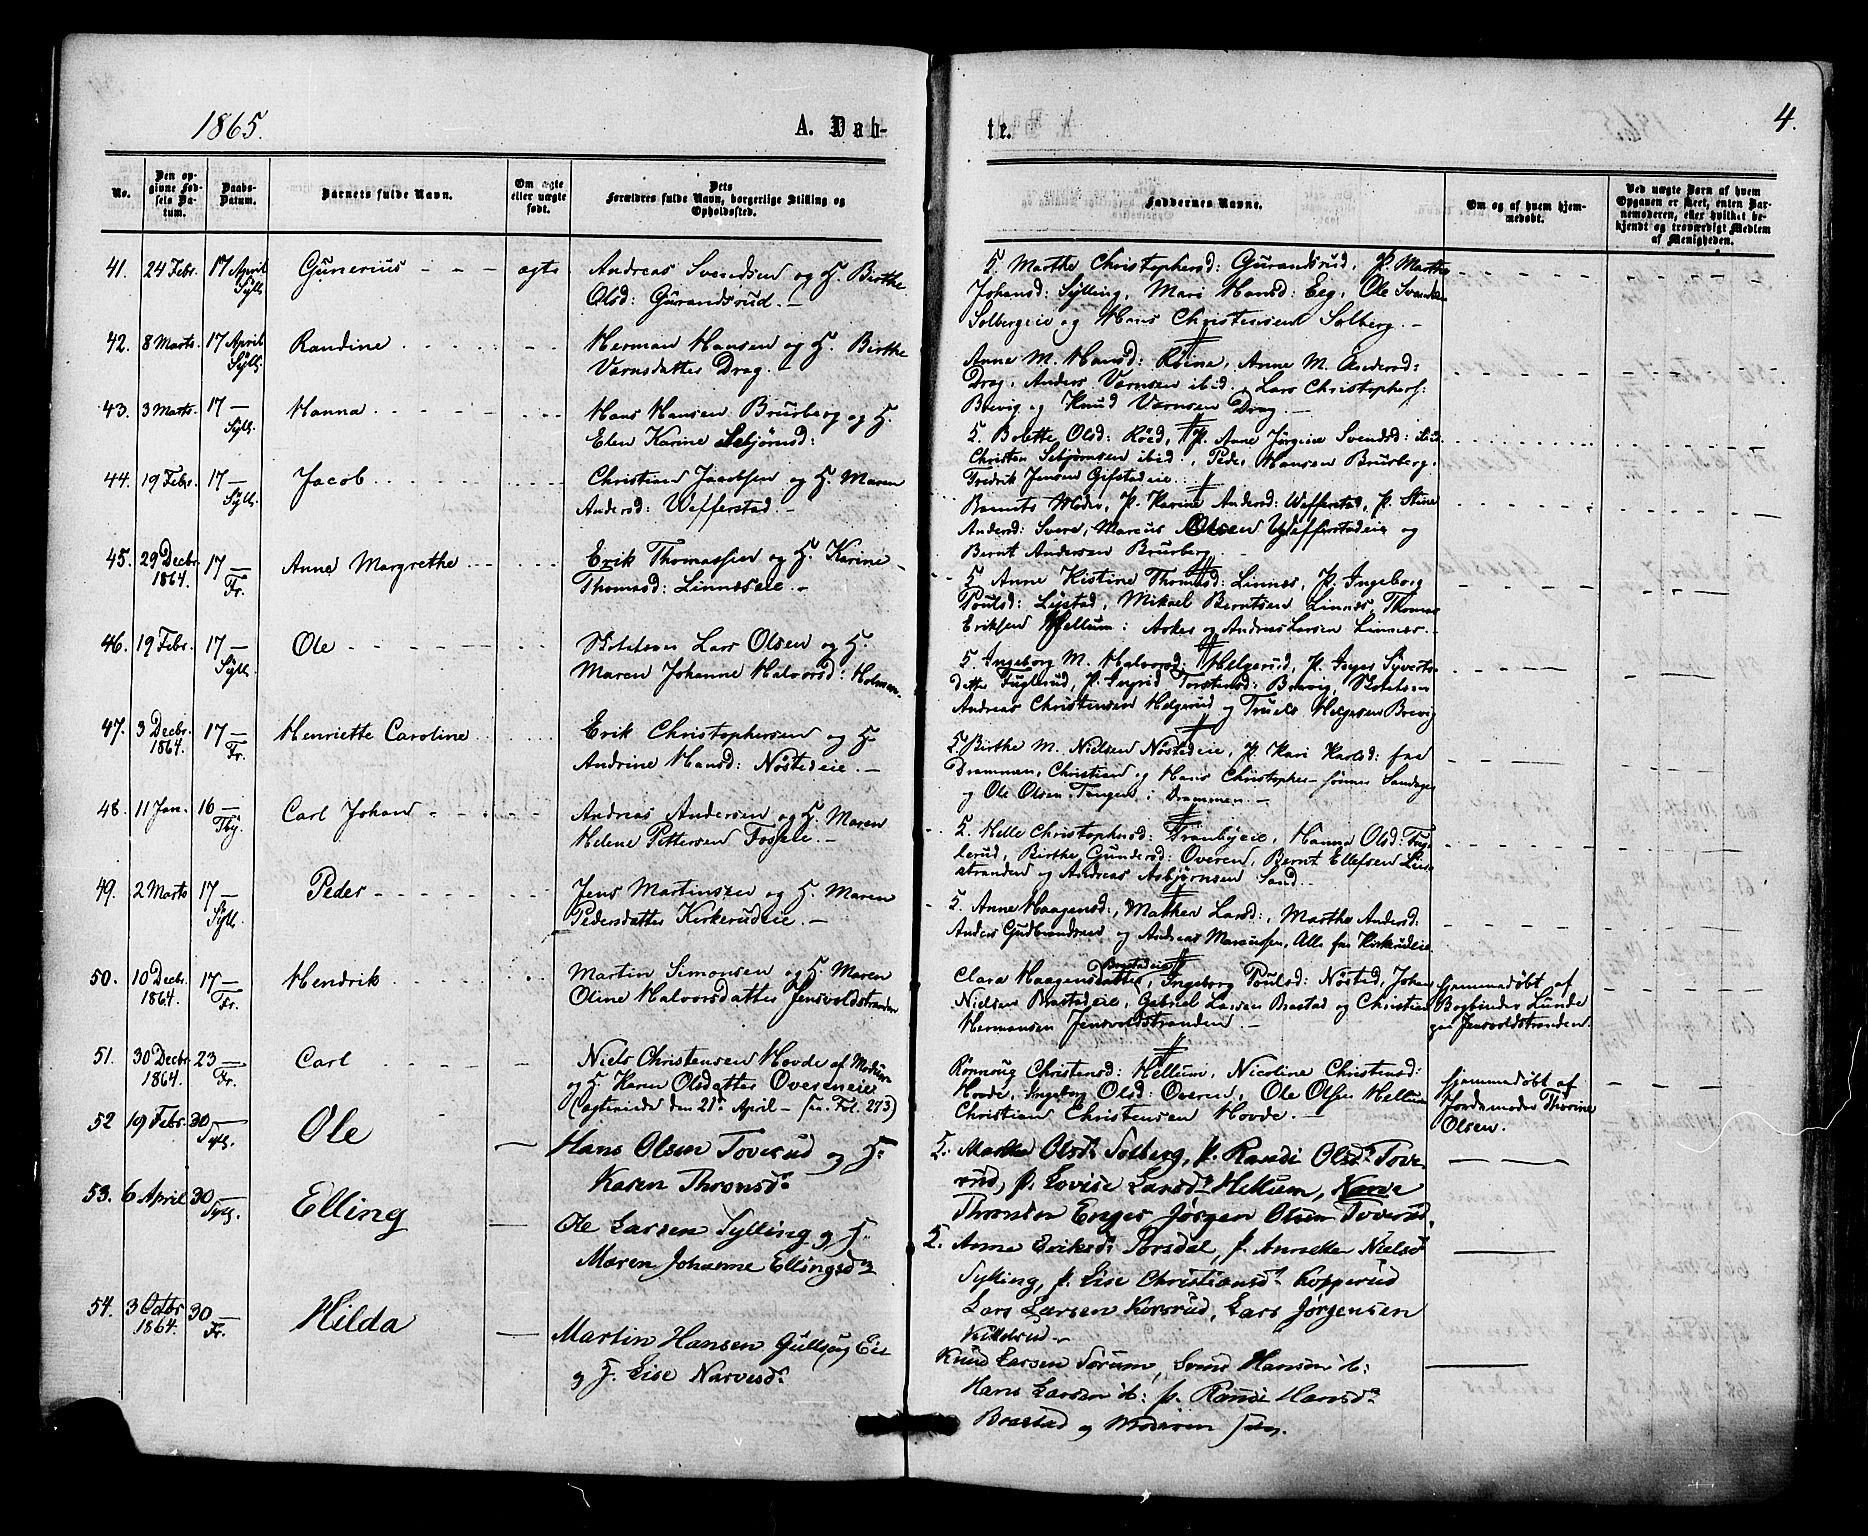 1865.
A. Døb-
te.
4.
No.
Den op-
givne Fød-
sels Da-
tum.
Daabs-
Datum.
Barnets fulde Navn.
Om ægte
eller uægte
født.
Dets
Forældres fulde Navn, borgerlige Stilling og
Opholdssted.
Faddernes Navne.
Om og af hvem hjem-
medøbt.
Ved uægte Børn af hvem
Opgaven er skeet, enten Bar-
nemoderen, eller hvilket be-
kjendt og troværdigt Medlem
af Menigheden.
41. 24 Febr. 17 April Gunerius ægte Andreas Svendsen og H. Birthe
Syll. Olsd: Gurandsrud. –
5. Marthe Christophersd: Gurandsrud, P. Marthe
Johansd: Sylling, Mari Hansd: Eeg, Ole Svendsen
Solbergeie og Hans Christensen Solberg. –
42. 8 Marts. 17 April Randine Herman Hansen og H. Birthe
Syll. Varnsdatter Drag. –
Anne M. Hansd: Røine, Anne M. Andersd:
Drag, Anders Varnsen ibid. Lars Christophers:
Brevig og Knud Varnsen Drag. –
43. 3 Marts. 17 – Hanna Hans Hansen Brurberg og H.
Syll. Elen Karine Sebjørnsd:
5. Bolette Olsd: Røed, P. Anne Jørgine Svendsd: ibid
Christen Sebjørnsen ibid, Peder Hansen Brurberg,
Fredrik Jensen Gifstadeie. –
44. 19 Febr. 17 – Jacob Christian Jacobsen og H. Maren
Syll. Andersd: Vefferstad. –
Barnets Moder, P. Karine Andersd: Vefferstad, P. Stine
Andersd: Svere, Marcus Olsen Vefferstadeie og
Bernt Andersen Brurberg. –
45. 29 Decbr. 17 – Anne Margrethe Erik Thomassen og H. Karine
1864. Fr. Thomasd: Linneseie. –
5. Anne Kistine Thomsd: Linnes, P. Ingeborg
Poulsd: Lystad, Mikael Berntsen Linnes, Thomas
Eriksen Hellum: Asker og Andreas Larsen Linnes. –
46. 19 Febr. 17 – Ole Lars Olsen og H.
Syll. Maren Johanne Halvorsd: Holmen.
5. Ingeborg M. Halvorsd: Helgerud, P. Inger Syverts-
datter Fuglerud, P. Ingrid Torstensd: Brevig,
Andreas Christensen Helgerud og Truels Helgesen Brevig
47. 3 Decbr. 17 – Henriette Caroline Erik Christophersen og H.
1864. Fr. Andrine Hansd: Nøstedeie. –
5. Birthe M. Nielsen Nøstedeie, P. Kari Karlsd: fra
Drammen, Christian og Hans Christopher-sønner Sandager
og Ole Olsen Tangen i Drammen. –
48. 11 Jan. 16 – Carl Johan Andreas Andersen og H. Maren
Tby. Helene Pettersen Fosseie. –
5. Helle Christophersd: Tranbyeie, Hanna Olsd: Fug-
lerud, Birthe Gundersd: Overen, Bernt Ellefsen Lier-
stranden og Andreas Asbjørnsen Sand. –
49. 2 Marts 17 – Peder Jens Martinsen og H. Maren
Syll. Pedersdatter Kirkerudeie. –
5. Anne Haagensd:, Mathea Larsd:, Marthe Andersd:
Anders Gudbrandsen og Andreas Marcussen, Alle fra Kirkerudeie
50. 10 Decbr. 17 – Hendrik Martin Simonsen og H. Maren
1864. Fr. Oline Halvorsdatter Jensvoldstranden
Brastadeie
Clara Haagensdatter, Ingeborg Poulsd: Nøsted, Johan
Nielsen Brastadeie, Gabriel Larsen Brastad og Christian
Hermansen Jensvoldstranden. –
hjemmedøbt af
Bogbinder Lunde
paa Jensvoldstranden.
51. 30 Decbr. 23 – Carl Niels Christensen Hovde af Modum
1864. Fr. og H. Karen Olsdatter Overeneie
(ægteviede den 21de April – se Fol. 273)
Rønnoug Christensd: Hellum, Nicoline Christensd:
Hovde, Ingeborg Olsd: Overen, Ole Olsen Hellum
Christian Christensen Hovde. –
hjemmedøbt af
Jordemoder Thorine
Olsen.
52 19 Febr. 30 – Ole – Hans Olsen Toverud og H.
Syll. Karen Thronsd.
5. Marthe Olsd. Solberg, p. Randi Olsd. Tove-
rud, p. Lovise Larsd. Hellum, Narve
Thronsen Enger Jørgen Olsen Toverud.
53. 6 April 30 – Elling – Ole Larsen Sylling og H.
Syll. Maren Johanne Ellingsd.
5. Anne Eriksd. Torsdal, p. Annette Nielsd
Sylling, p. Lise Christiansd. Kopperud
Lars Larsen Korsrud, Lars Jørgensen
Kittelsrud –
54. 3 Octbr 30 – Hilda – Martin Hansen Gullsoug Eie
1864. Fr. og H. Lise Narvesd.
Knud Larsen Sørum, Svend Hansen ib:
Hans Larsen ib: p. Randi Hansd.
Brastad og Moderen selv.